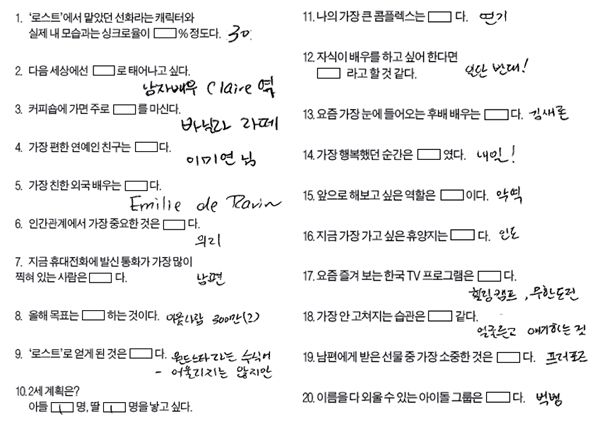 1. '로스트'에서 맡았던 선화라는 캐릭터와
실제 내 모습과는 싱크로율이 % 정도다. 30
2. 다음 세상에선 로 태어나고 싶다.
남자배우 Claire 역
3. 커피숍에 가면 주로 를 마신다.
바닐라 라떼
4. 가장 편한 연예인 친구는 다.
이미연 님
5. 가장 친한 외국 배우는 다.
Emilie de Ravin
6. 인간관계에서 가장 중요한 것은 다.
의리
7. 지금 휴대전화에 발신 통화가 가장 많이
찍혀 있는 사람은 다. 남편
8. 올해 목표는 하는 것이다. 이웃사람 300만(2)
9. '로스트'로 얻게 된 것은 다. 월드스타라는 수식어
- 어울리지는 않지만
10. 2세 계획은?
아들 1 명, 딸 1 명을 낳고 싶다.
11. 나의 가장 큰 콤플렉스는 다. 연기
12. 자식이 배우를 하고 싶어 한다면
라고 할 것 같다. 일단 반대!
13. 요즘 가장 눈에 들어오는 후배 배우는 다. 김새론
14. 가장 행복했던 순간은 였다. 내일!
15. 앞으로 해보고 싶은 역할은 이다. 악역
16. 지금 가장 가고 싶은 휴양지는 다. 인도
17. 요즘 즐겨 보는 한국 TV 프로그램은 다.
힐링캠프, 무한도전
18. 가장 안 고쳐지는 습관은 같다.
얼굴 얘기하는 것
19. 남편에게 받은 선물 중 가장 소중한 것은 다. 프러포즈
20. 이름을 다 외울 수 있는 아이돌 그룹은 다. 빅뱅